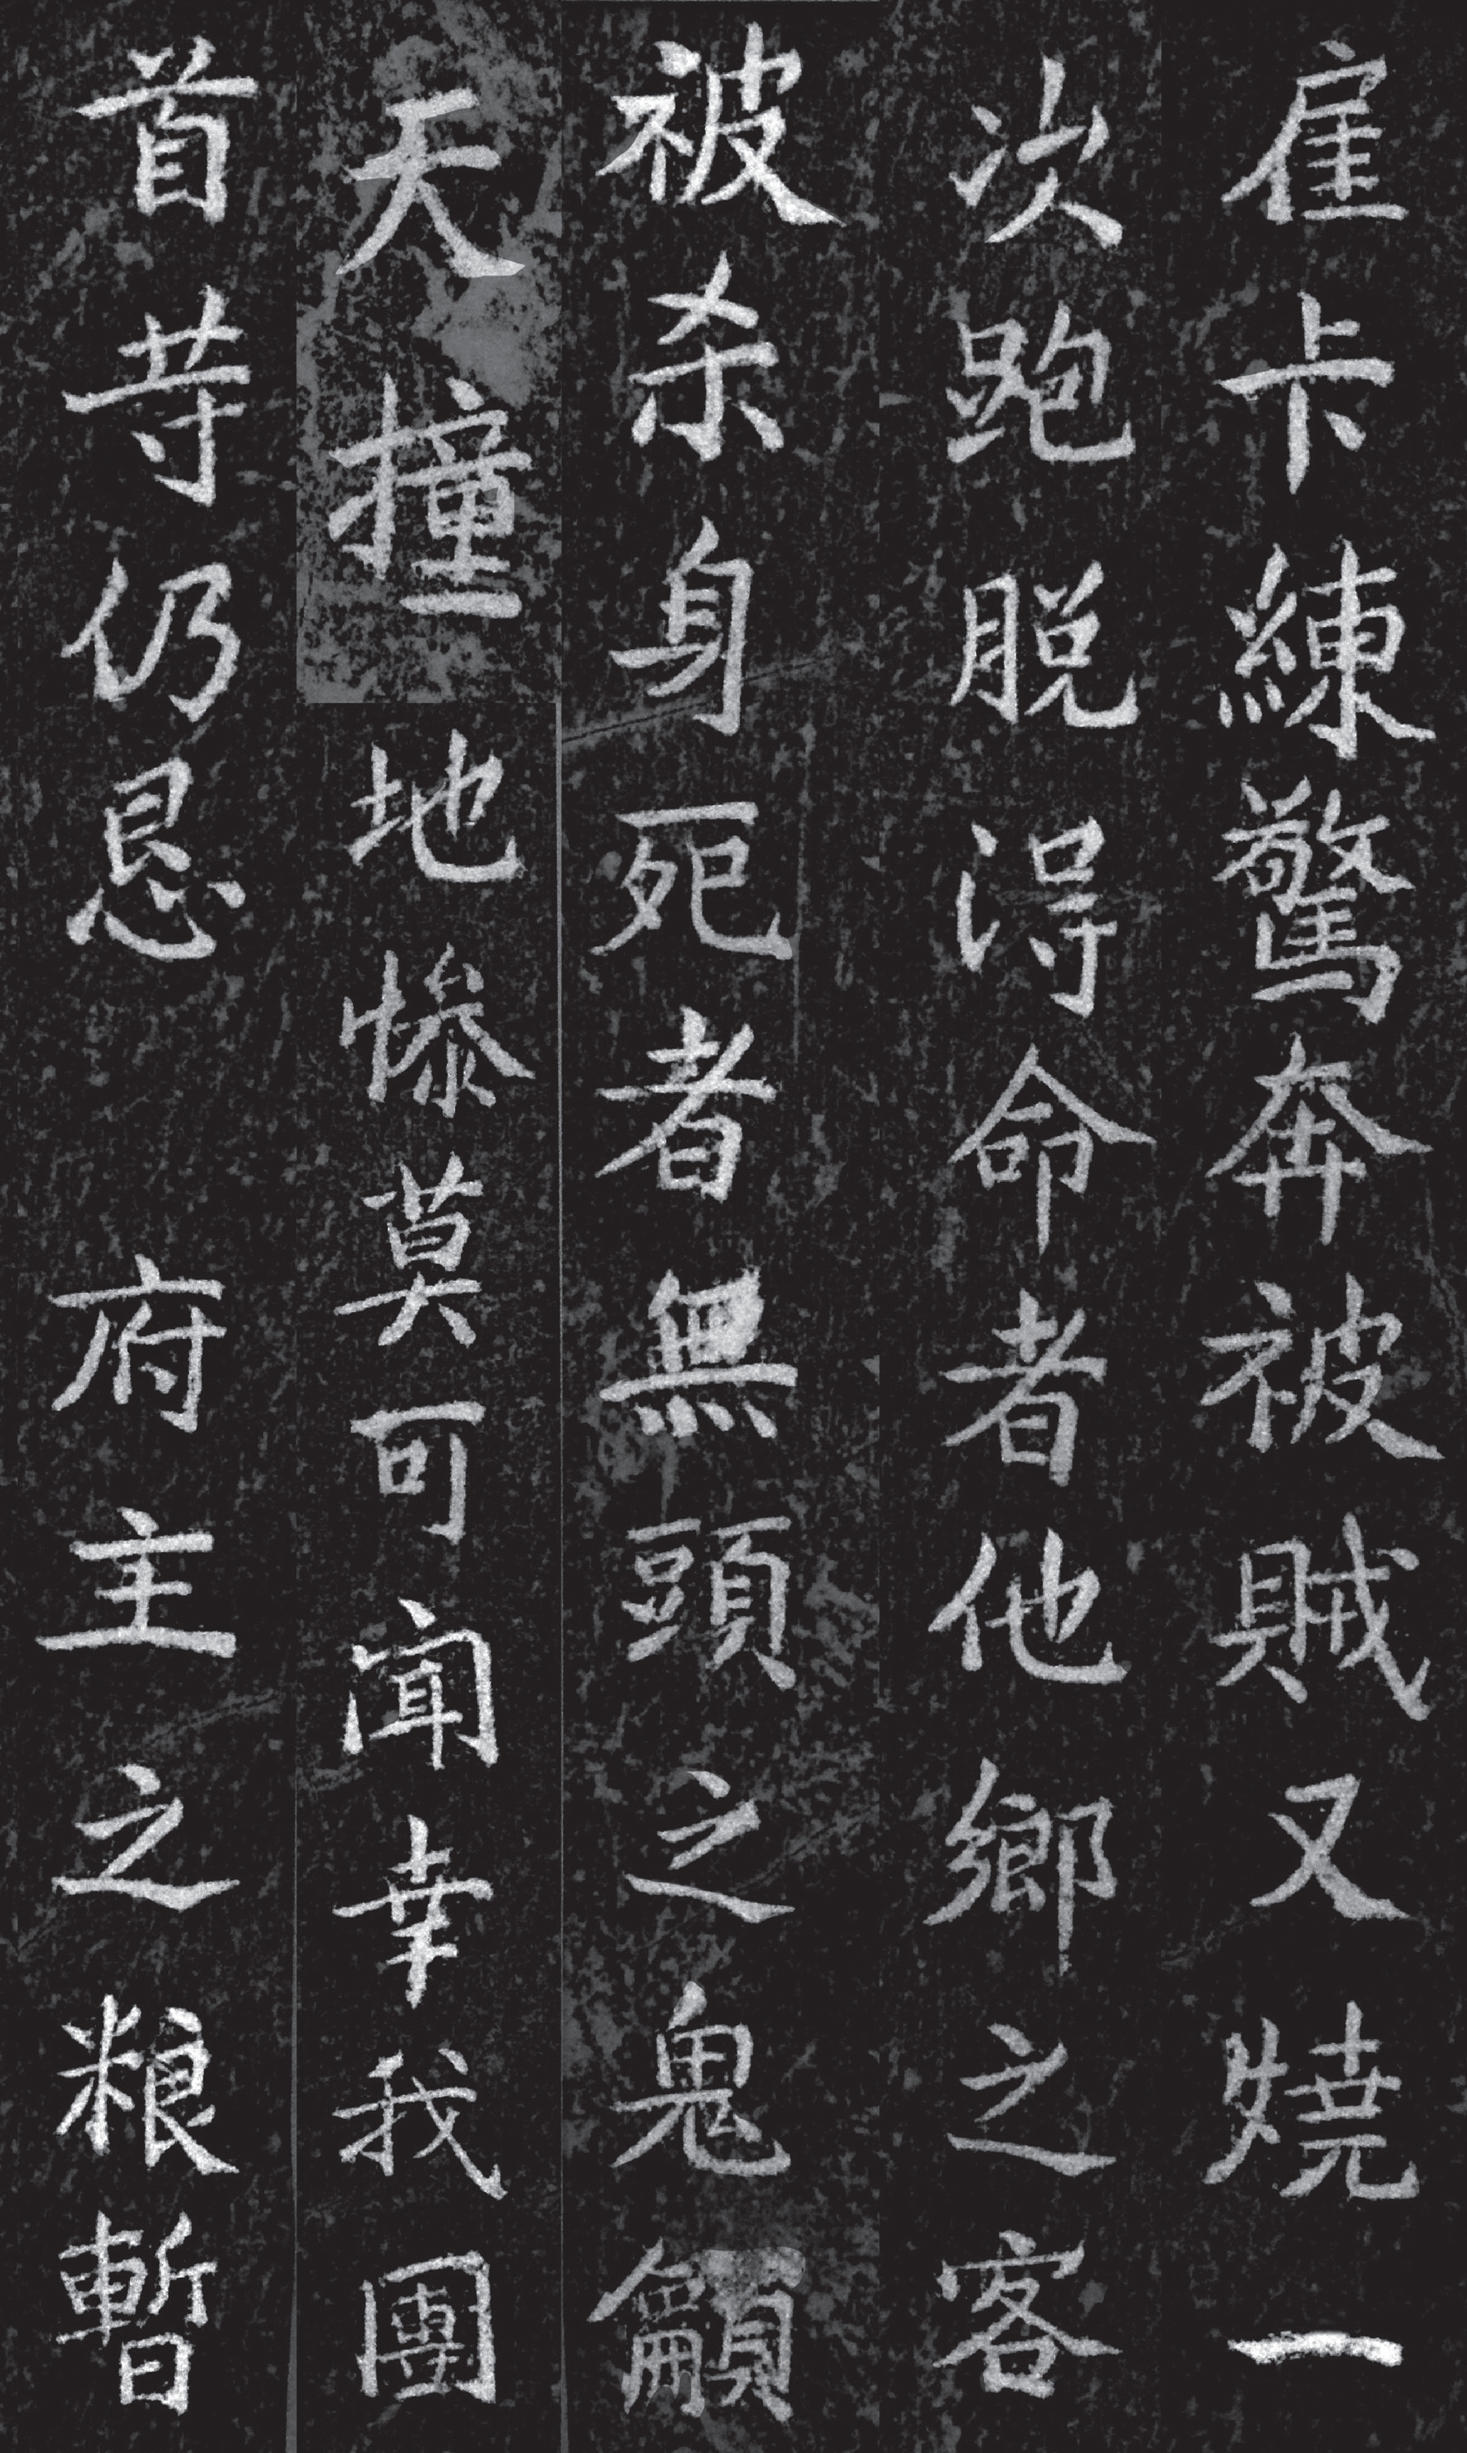 雇卡練驚奔被賊又燒一
次跑脱淂命者他鄉之客
被杀身死者無頭之鬼籲
天撞地慘莫可闻幸我團
首䒭仍恳　府主之粮暫